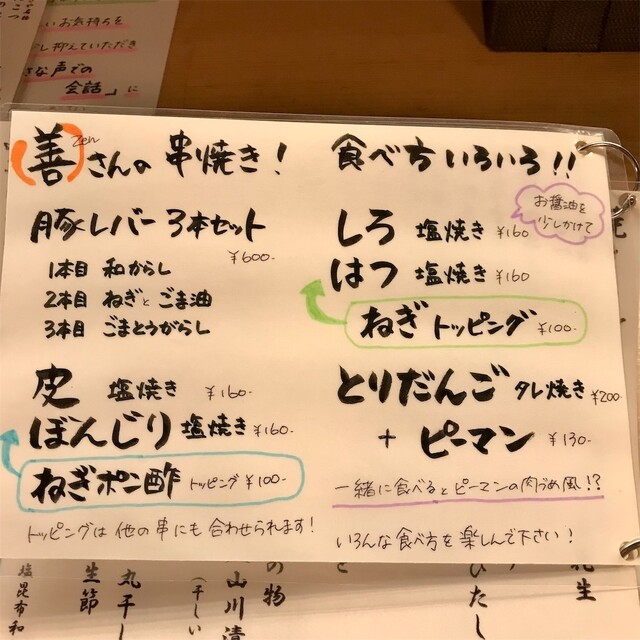 いお気持ちを
し抑えていただき
さな声での
会話」に
善さんの串焼き！
zen
食べ方いろいろ!!
豚レバー 3本セット
¥600-
1本目 和からし
2本目 ねぎとごま油
3本目 ごまとうがらし
皮 塩焼き ¥160-
ぼんじり 塩焼き ¥160-
ねぎポン酢 トッピング ¥100-
トッピングは他の串にも合わせられます！
お醤油を
少しかけて
しろ 塩焼き ¥160
はつ 塩焼き ¥160
ねぎトッピング ¥100-
とりだんご タレ焼き ¥200-
+ ピーマン ¥130-
一緒に食べるとピーマンの肉づめ風!?
いろんな食べ方を楽しんで下さい！
花生
ひたし
の物
山川漬
(干しい
丸干し
生節
塩昆布和